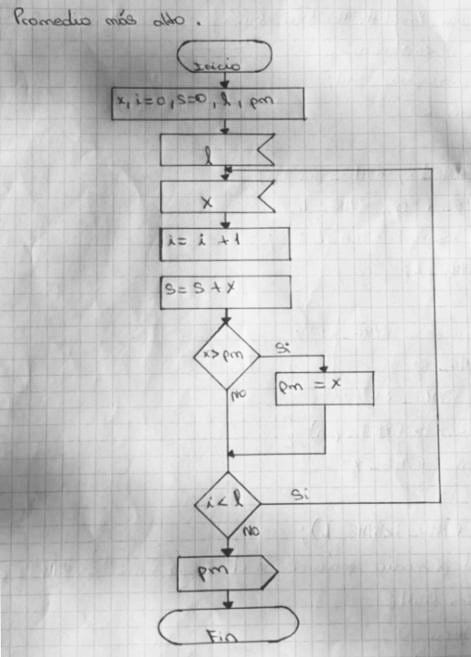 Promedio más alto.
Inicio
x, i=0, s=0, l, pm
l
x
i= i +1
s= s + x
x> pm
Si
pm = x
NO
i< l
Si
NO
pm
Fin